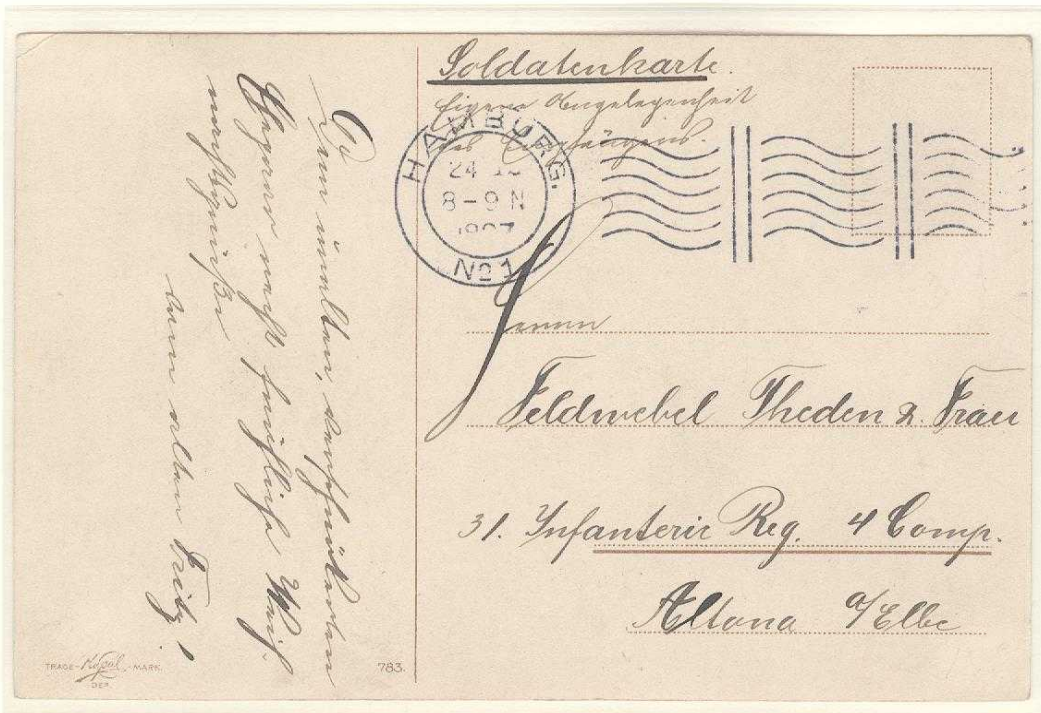 Soldatenkarte.
Eigene Angelegenheit
des Empfängers.
HAMBURG.
24 12
8-9 N
1907
No 1
Herrn
Feldwebel Theden & Frau
31. Infanterie Reg. 4 Comp.
Altona a/Elbe
recht herzliche Weih-
nachtsgrüße
alten Fritz!
TRADE- -MARK.
DEP.
783.